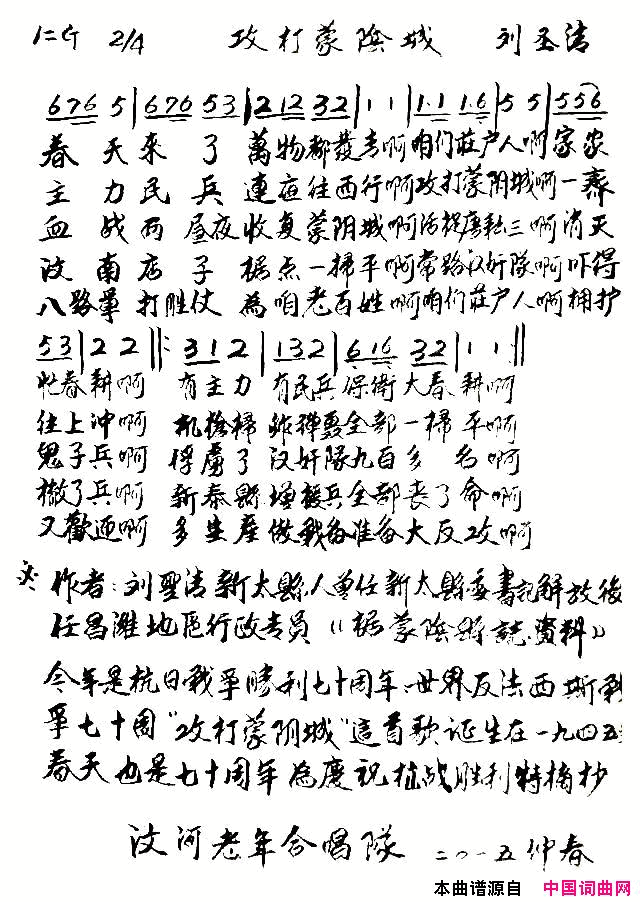 2/4 攻打蒙陰城 刘圣清
676 5 | 676 53 | 2 12 32 | 1 1 | 1·1 1·6 | 5 5 | 556
春天来了萬物都發青啊咱们莊户人啊家家
主力民兵連夜往西行啊攻打蒙阴城啊一齐
血战两昼夜收复蒙阴城啊活捉唐耘三啊消灭
汶南店子据点一掃平啊常路汉奸隊啊吓得
八路軍打胜仗為咱老百姓啊咱们莊户人啊拥护
53 | 2 2 ‖: 312 | 132 | 616 32 | 1 1 :‖
忙春耕啊 有主力 有民兵 保衛大春耕啊
往上冲啊 机槍掃 炸弹轟 全部一掃平啊
鬼子兵啊 俘虜了 汉奸隊 九百多名啊
撤了兵啊 新泰縣 增援兵 全部丧了命啊
又歡迎啊 多生産 做战备 准备大反攻啊
作者:刘聖清新太縣人曾任新太縣委書記解放後
任昌濰地區行政专員《据蒙陰縣誌资料》
今年是抗日戰爭勝利七十周年、世界反法西斯戰
爭七十周“攻打蒙阴城”這首歌证生在一九四五
春天也是七十周年為慶祝抗战胜利特摘抄
汶河老年合唱隊 二〇一五仲春
本曲谱源自 中国词曲网